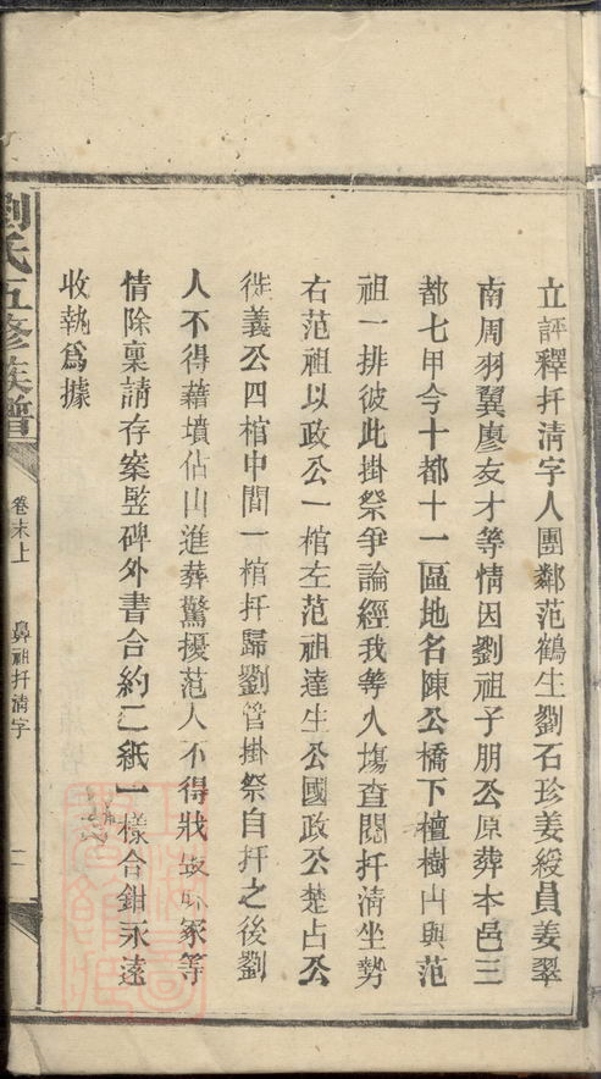 立評釋扦清字人團鄰范鶴生劉石珍姜綬員姜翠
南周羽翼廖友才等情因劉祖子朋公原葬本邑三
都七甲今十都十一區地名陳公橋下檀樹山與范
祖一排彼此掛祭爭論經我等入塲查閱扦清坐勢
右范祖以政公一棺左范祖達生公國政公楚占公
從義公四棺中間一棺扦歸劉管掛祭自扦之後劉
人不得藉墳佔山進葬驚擾范人不得戕冢等
情除稟請存案竪碑外書合約二紙一樣合鉗永遠
收執爲據
劉氏五修族譜
卷末上
鼻祖扦清字